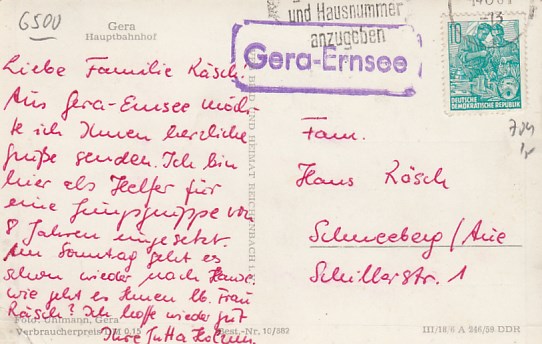 6500
Gera
Hauptbahnhof
Liebe Familie Käsch.
Aus Gera-Ernsee möch-
te ich Ihnen herzliche
Grüße senden. Ich bin
hier als Helfer für
eine Jungsgruppe von
8 Jahren eingesetzt.
Am Sonntag geht es
schon wieder nach Hause.
wie geht es Ihnen lb. Frau
Käsch? Ich hoffe wieder gut
Ihre Jutta
Foto: Uhlmann, Gera
Verbraucherpreis DM 0.15
Best.-Nr. 10/882
BILD UND HEIMAT REICHENBACH
und Hausnummer
anzugeben
Gera-Ernsee
-13
10
DEUTSCHE
DEMOKRATISCHE REPUBLIK
Fam.
Hans Käsch
Schneeberg/Aue
Schillerstr. 1
III/18/6 A 246/59 DDR